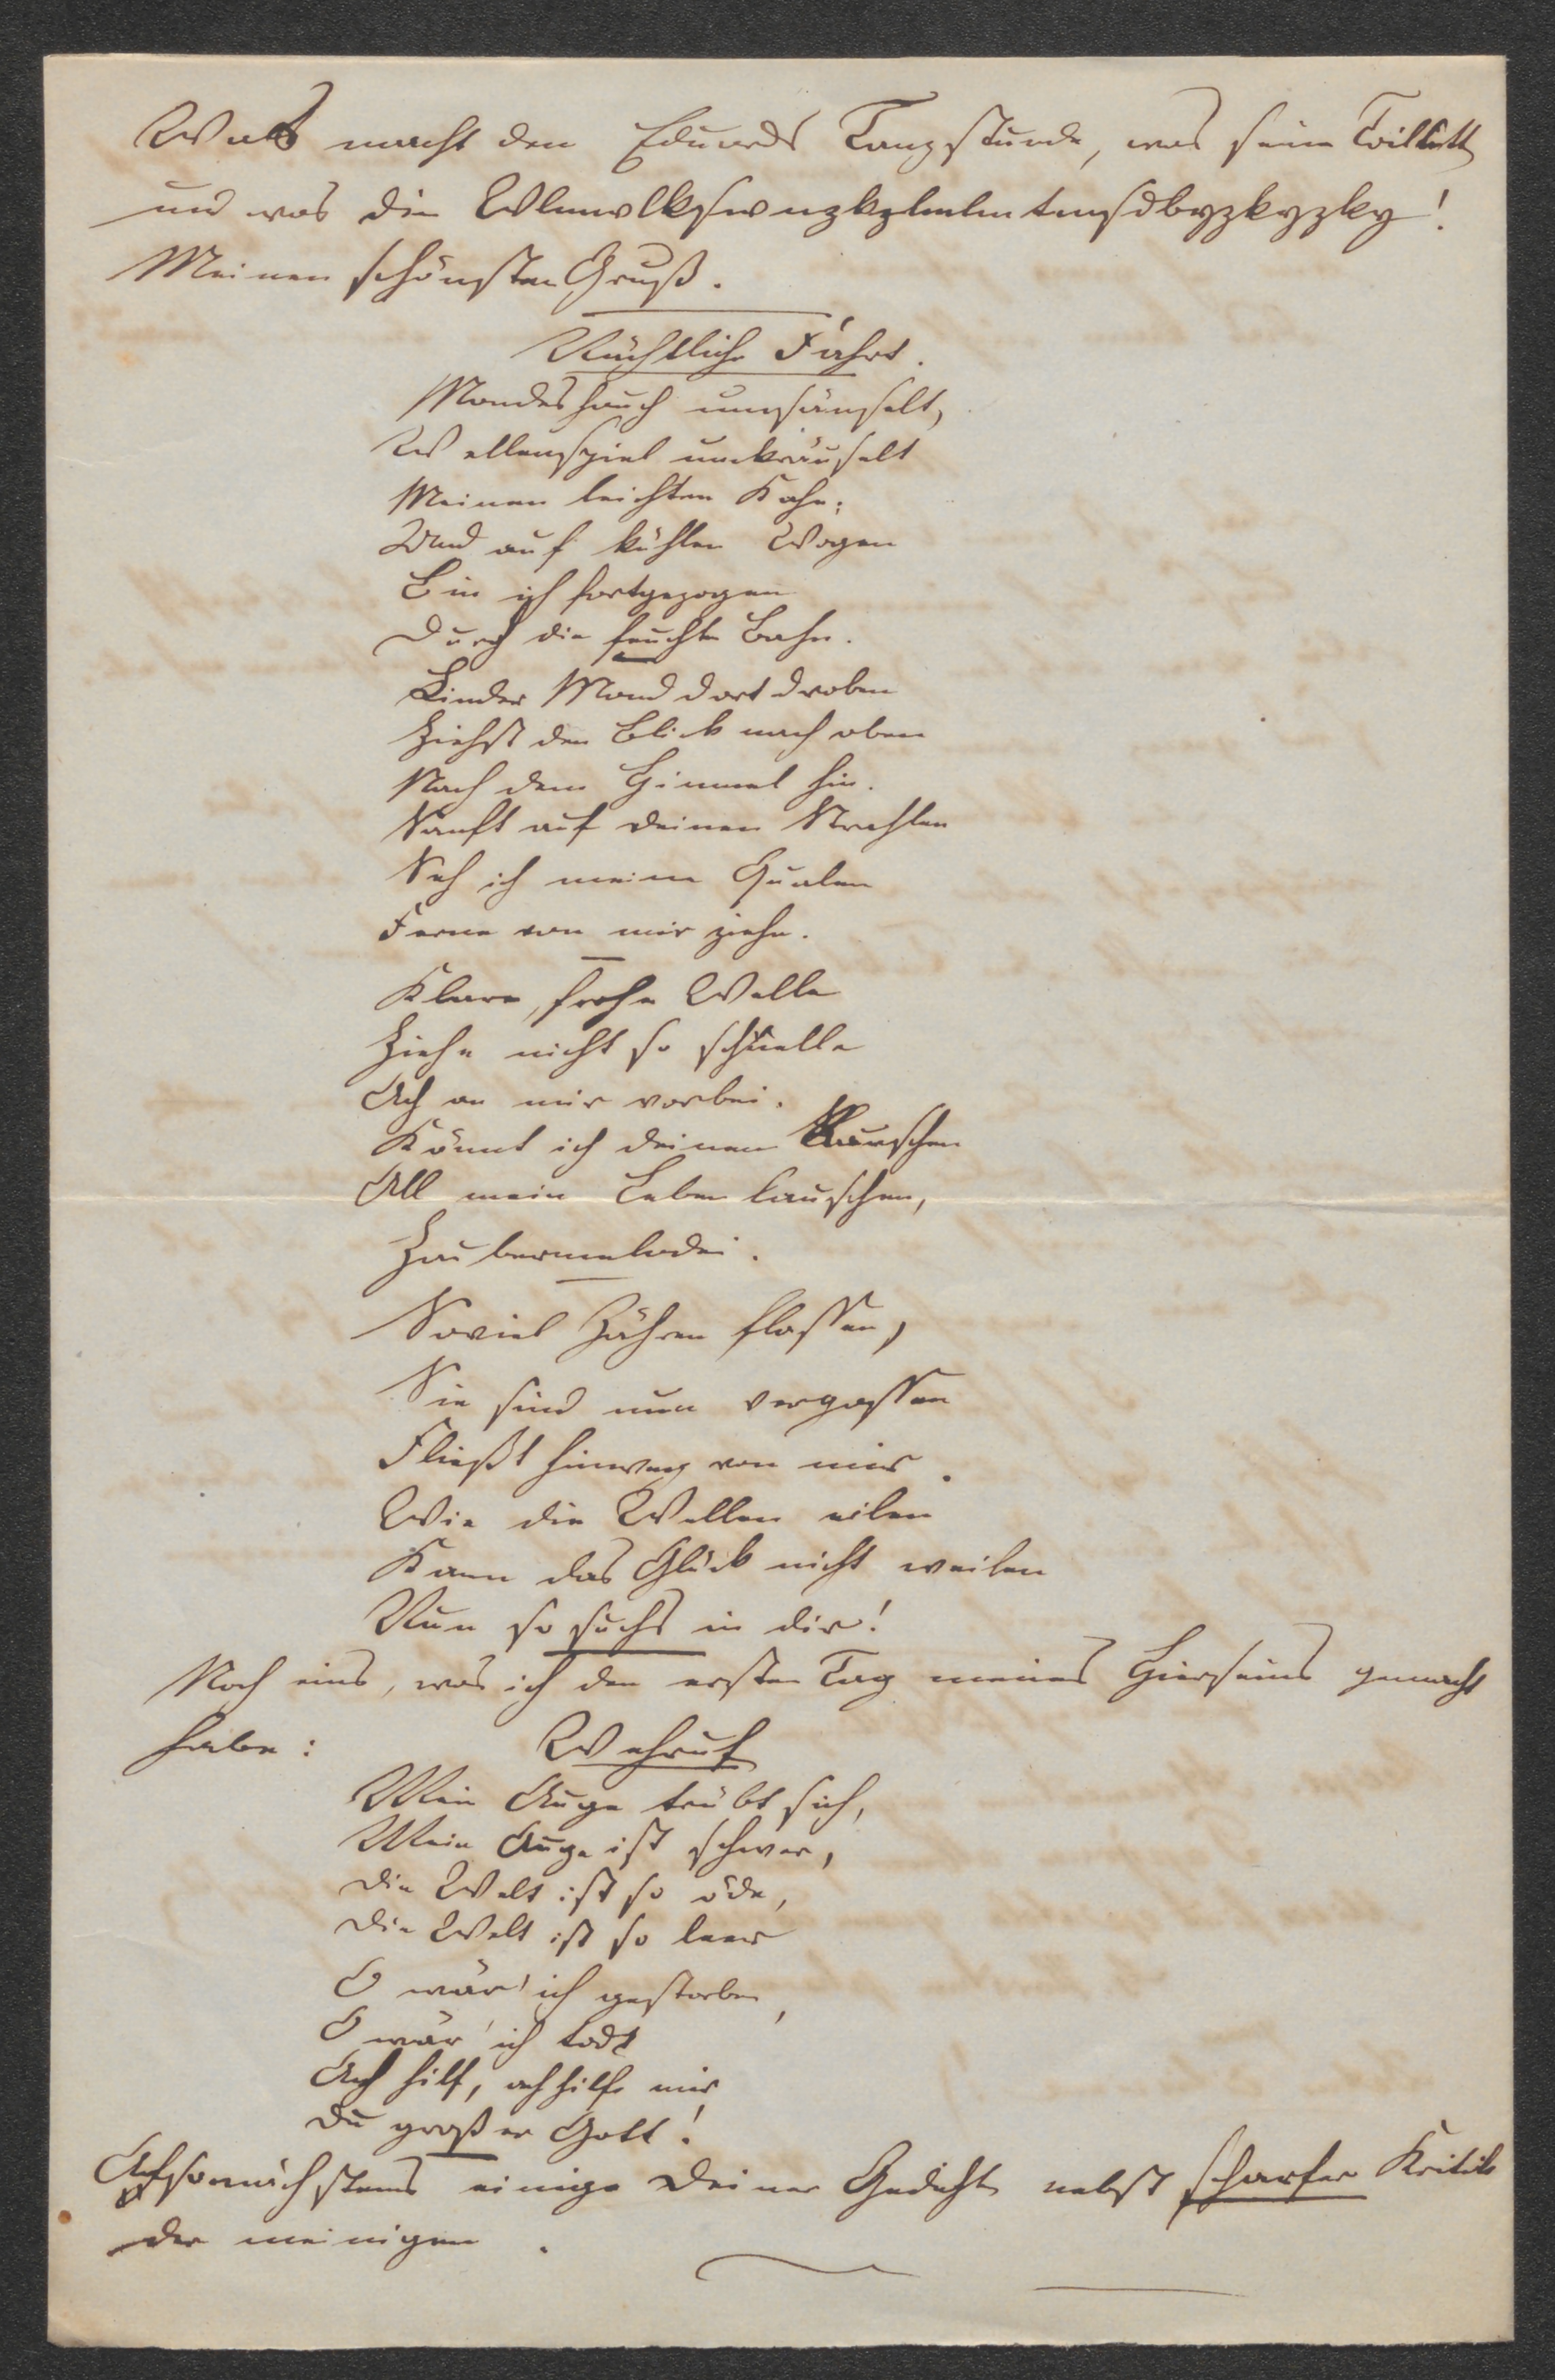 Was macht den Eduards Tanzstunde, was seine Toillett
und was die !
Meinen schönsten Gruß.
Nächtliche Fahrt.
Mondeshauch umsäuselt,
Wellenspiel umkräuselt
Meinen leichten Kahn;
Und auf kühlen Wogen
Bin ich fortgezogen
Durch die feuchte Bahn.
Linder Mond dort droben
Ziehst den Blick nach oben
Nach dem Himmel hin.
Sanft auf deinen Strahlen
Seh ich meine Qualen
Ferne von mir ziehn.
Klare, frohe Welle
Ziehe nicht so schnelle
Ach an mir vorbei.
Könnt ich deinem Rauschen
All mein Leben lauschen,
Zaubermelodei.
Soviel Zähren flossen,
Sie sind nun vergossen
Fließt hinweg von mir.
Wie die Wellen eilen
Kann das Glück nicht weilen
Nun so suchs in dir!
Noch eins, was ich den ersten Tag meines Hierseins gemacht
habe:
Wehruf
Mein Auge trübt sich,
Mein Auge ist schwer,
Die Welt ist so öde,
Die Welt ist so leer
O wär' ich gestorben,
O wär' ich todt
Ach hilf, ach hilfe mir
Du großer Gott!
einige Deiner Gedichte nebst scharfer Kritik
der meinigen.